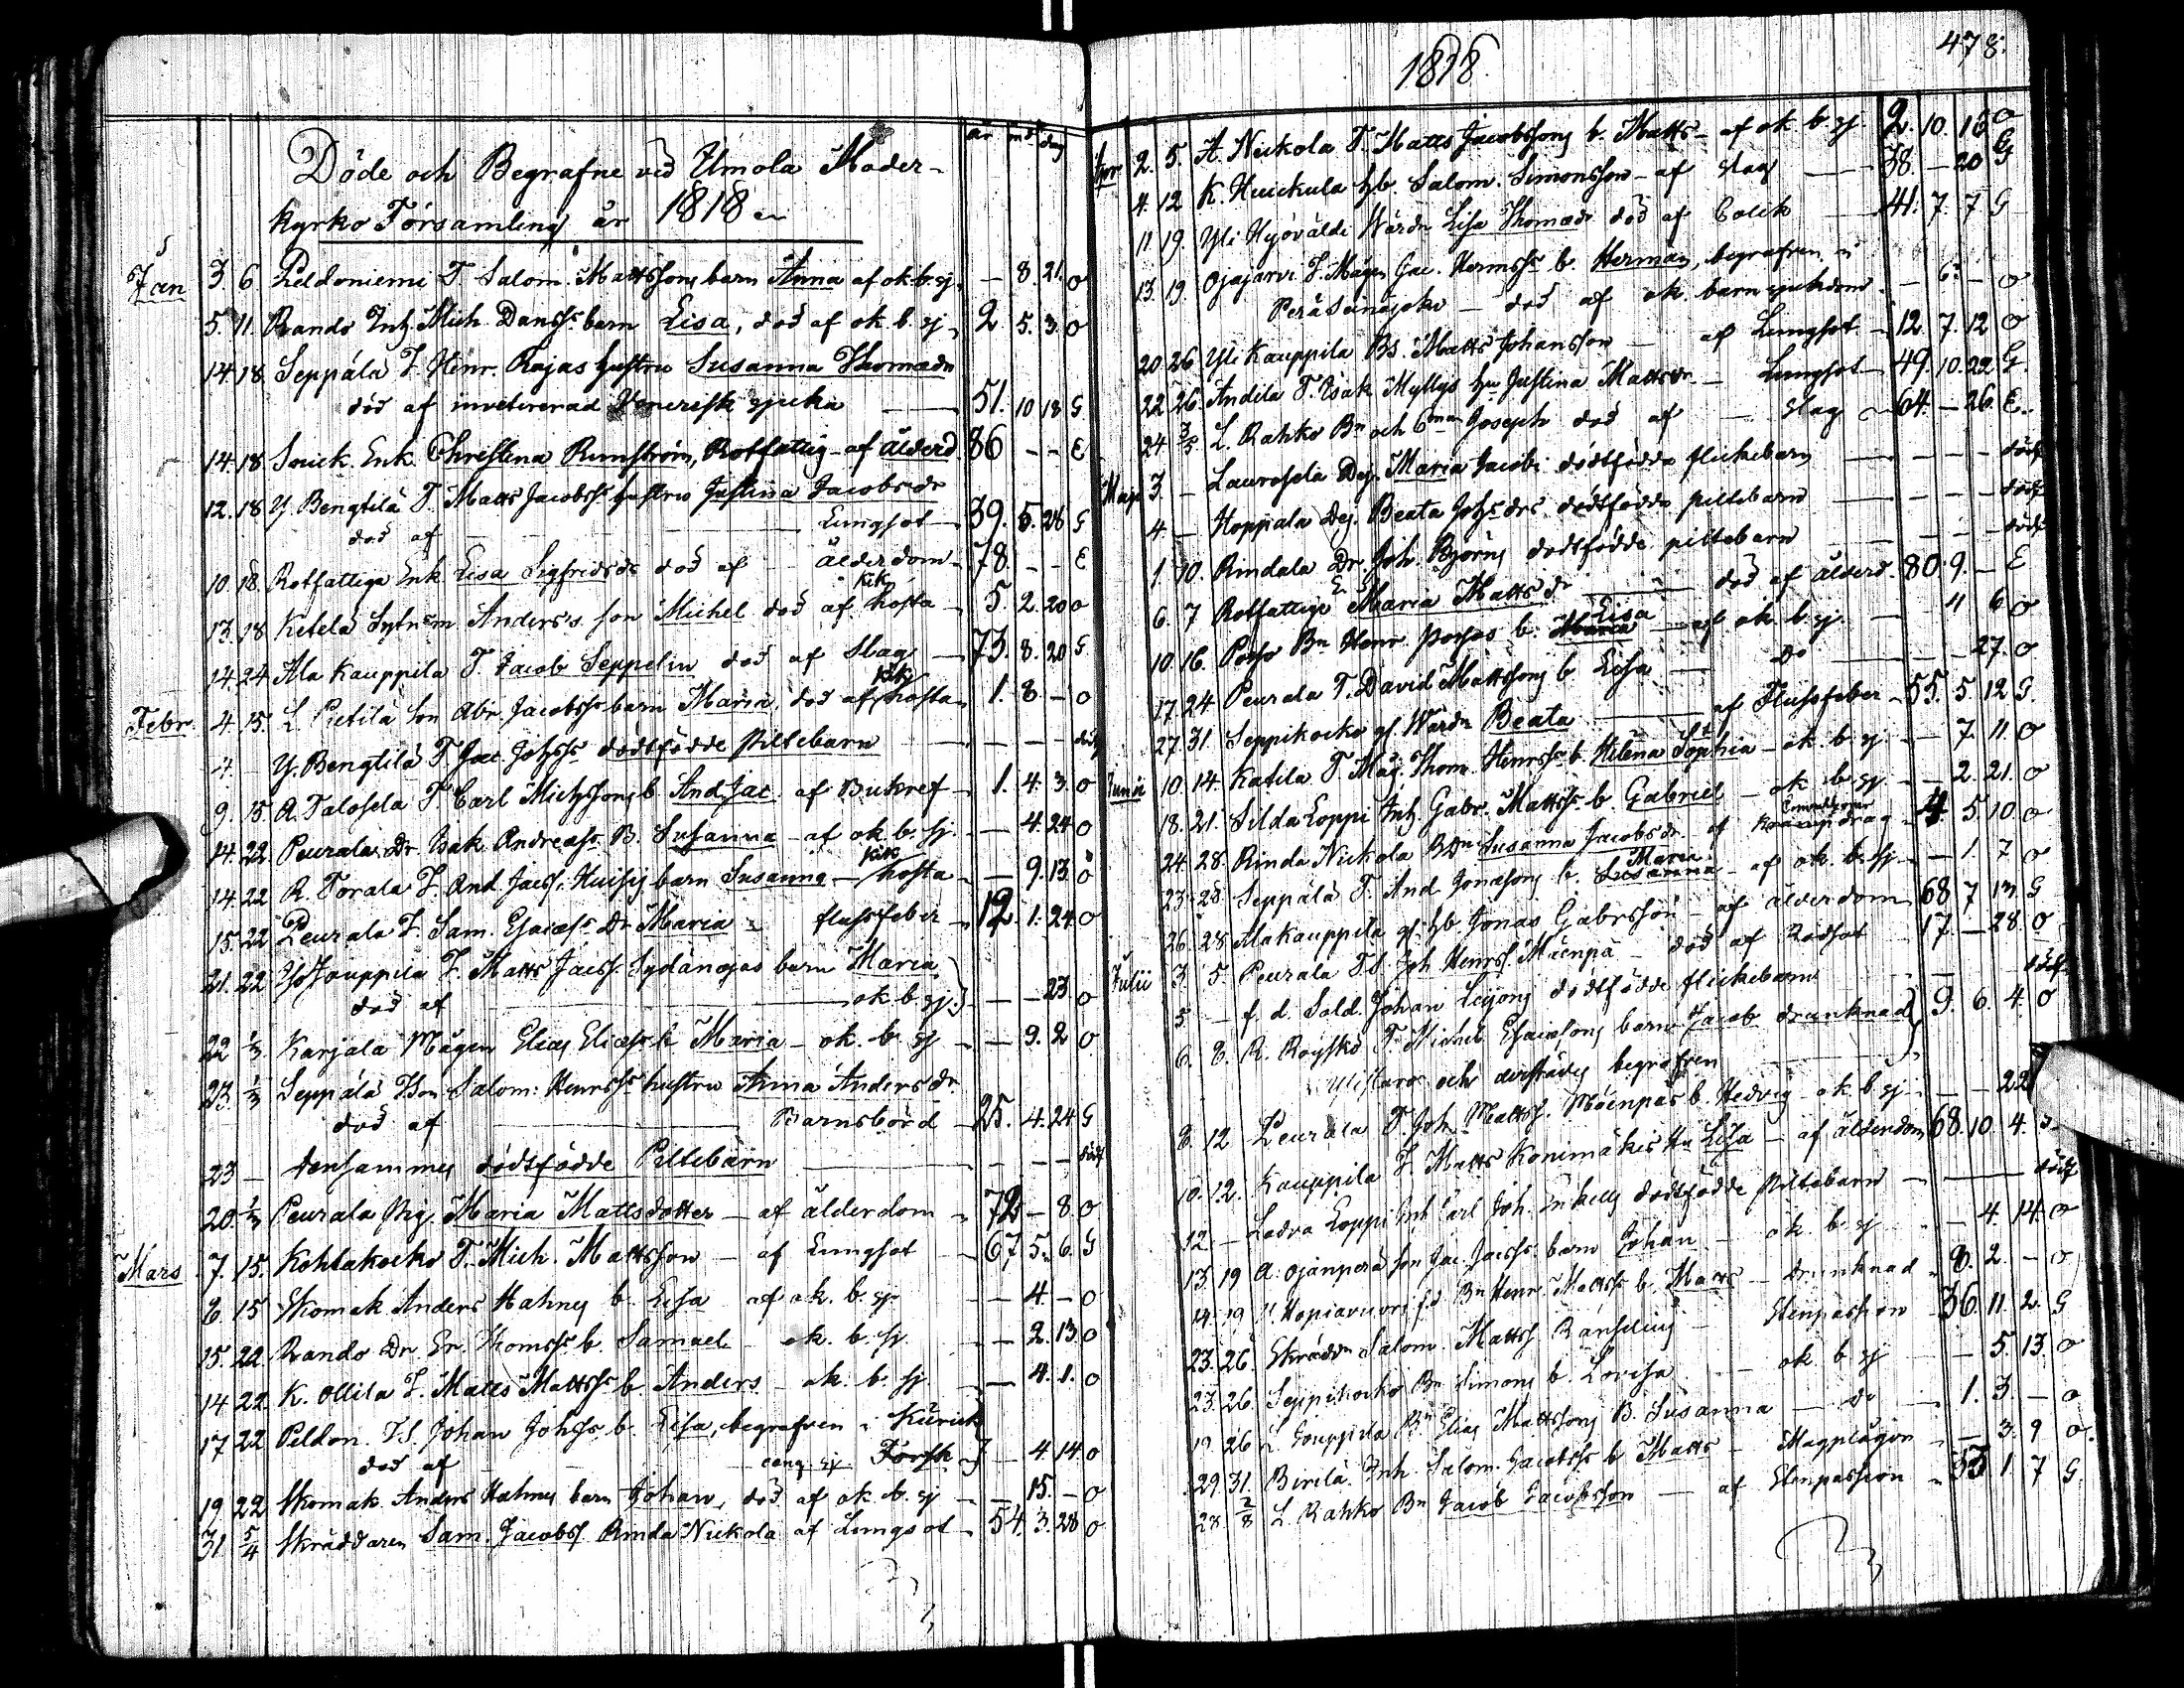 år md dag
Döde och Begrafne vid Ilmola Moder-
kyrko Församling år 1818
Jan 3. 6. Peldoniemi T. Salom. Mattssons barn Anna af ok. b. sj. — 8. 21. o
5. 11. Rando Inh. Mich. Danss. barn Lisa, död af ok. b. sj. 2 5. 3. o
14. 18. Seppälä T. Henr. Rajas hustru Susanna Thomædr
död af invetererad Venerisk sjuka — 51. 10 18 G
14. 18 Enk. Christina Runström, Rotfattig - af ålderd 86 - - E
12. 18 Y. Bengtilä T. Matts Jacobss. hustru Justina Jacobsdr
död af — Lungsot — 39. 5. 28 G
10. 18. Rotfattiga Enk. Lisa Sigfridsdr död af ålderdom — 78. - - E
13. 18 Ketelä Sytn.m Anders's son Michel död af kik hosta 5. 2. 20 o
14. 24 Ala Kauppila T. Jacob Seppelin död af Slag — 73. 8. 20 G
Febr. 4. 15. L. Pietilä Son Abr. Jacobss. barn Maria, död af kik hosta 1. 8 - o
4. Y. Bengtilä T. Jac. Johss. dödfödde Piltebarn — — — dödf
9. 15 A. Talosela T. Carl Michssons b. And. Jac. af Bukref 1. 4. 3. o
14. 22. Peurala Dr. Isak Andreæss. B. Susanna - af ok. b. sj. — 4. 24 o
14. 22 R. Torala T. And. Jacss. barn Susanna — kik hosta — 9. 13. o
15. 22 Peurala T. Sam. Esaiæss. Dr Maria flussfeber 12 1. 24 o
21. 22 Yli Jouppila T. Matts Jacss. Sydänojas barn Maria
död af — ok. b. sj. — — 23. o
22 1/3 Karjala Mågen Elias Eliæss. b. Maria — ok. b. sj — 9. 2 o
23. 1/3 Seppälä TSon Salom. Henrss. hustru Anna Andersdr.
död af — Barnsbörd — 25. 4. 24 G
23 — densammes dödfödde Piltebarn — — — dödf
20. 1/3 Peurala Pig. Maria Mattsdotter — af ålderdom 72 — 8. o
Mars 7. 15. Kohlakoski T. Mich. Mattsson — af Lungsot 67 5. 6. G
8. 15 Skomak. Anders Hahnes b. Lisa af ok. b. sj. — 4. — o
15. 22. Rando Dr. Er. Thomss. b. Samuel — ok. b. sj. — 2. 13. o
14 22. K. Ollila T. Matts Mattss. b. Anders — ok. b. sj. — 4. 1. o
17 22 Peldon. TS. Johan Johss. b. Lisa, begrafven i Kurick
död af — — 4. 14 o
19 22 Skomak. Anders Hahnes barn Johan, död af ok. b. sj — 15. — o
31 5/4 Skräddaren Sam. Jacobss. Rinda Nickola af Lungsot 54. 3. 28 o
1818.
478.
Apr. 2. 5. A. Nickola T. Matts Jacobssons b. Matts — af ok. b. sj. 2. 10. 16 o
4. 12 K. Huickula hb. Salom. Simonsson — af Slag — 38. — 20 G
11. 19. Yli Hyövälti Wärdn Lisa Thomædr död af Colik — 41. 7. 7 G
13. 19. Ojajärvi T. Mågen Jac. Hermss. b. Herman, begrafven i
Peräseinäjoki — död af ok. barnsjukdom — 6. — o
20. 26 Yli Kauppila Bs. Matts Johansson — af Lungsot — 12. 7. 12 o
22 26. Andila T. Isak Myllys hu. Justina Mattsdr. — Lungsot 49. 10. 22 G.
24 3/5 L. Rahko Bn och 6man Joseph död af — Slag — 64. — 26. E.
Maji 3. — Laurosela Dej. Maria Jacobi dödfödda flickebarn — — — dödf
4. — Hoppala Dej. Beata Johsdrs dödfödde piltebarn — — — dödf
1. 10. Rindala Dr. Joh. Björns dödfödde piltebarn — — — dödf
6. 7 Rotfattige E Maria Mattsdr — död af ålderd. 80 9. — E
10. 16. Pojo Bn Henr. Pojos b. Lisa — af ok. b. sj. — 4 6 o
17. 24. Peurala T. David Mattssons b. Lisa — Do — — 27. o
27. 31. Seppikoski gl. Wärdn Beata — af Flussfeber — 55. 5 12 G.
Junii 10. 14. Katila T. Måg. Thom. Henrss. b. Helena Sophia — ok. b. sj — 7. 11. o
18. 21. Silda Loppi Inh. Gabr. Mattss. b. Gabriel — ok. b. sj. — 2. 21. o
24. 28. Rinda Nickola BDr Susanna Jacobsdr. af Krampdrag 4. 5. 10. o
23. 28. Seppälä T. And. Jonæsons b. Maria — af ok. b. sj. — 1. 7 o
26. 28 Alakauppila gl. hb. Jonas Gabrsson — af ålderdom 68 7 13. G
Julii 3. 5. Peurala TS. Joh. Henrss. Mäenpä — död af Rödsot 17 — 28. o
5 — f. d. Sold. Johan Lejons dödfödde flickebarn — dödf
6. 8. R. Royskö T. Michel Esaiæsons barn Jacob drunknad 9. 6. 4. o
Ylistaro och derstädes begrafven
8. 12 Peurala T. Joh. Mattss. Mäenpäs b. Hedvig — ok. b. sj — — 22
10. 12. Kauppila T. Matts Konimäkis Hu Lisa — af ålderdom 68. 10. 4.
12 — Ladva Loppi Inh. Carl Joh. dödfödde Piltebarn — — dödf
13. 19 A. Ojanperä son Jac. Jacss. barn Johan — ok. b. sj — 4. 14. o
14. 19 Hopiavuori f.d Bn Henr. Mattss. b. Matts — drunknad 8. 2. — o
23. 26. Skräddn Salom. Mattss. — Stenpassion 36. 11. 2. G
23. 26. Seppikoski Bn Simons b. Lovisa — ok. b. sj — 5. 13. o
19. 26. L. Jouppila Bn Elias Mattssons B. Susanna — do 1. 3. — o
29. 31. Birilä Inh. Salom. Jacobss. b. Matts — Magplågor — 3. 9 o.
28. 2/8 L. Rahko Bn Jacob Jacobsson — af Stenpassion 53 1. 7 G